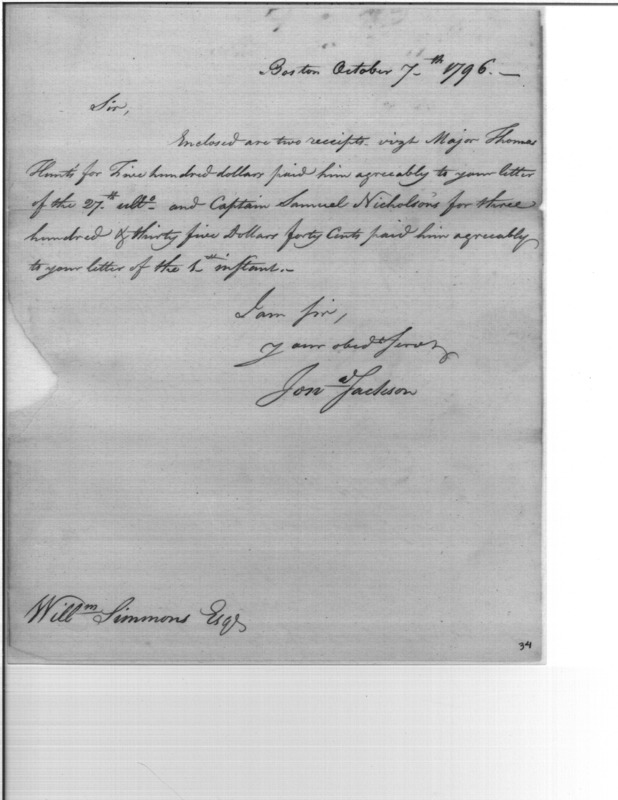 Boston October 7th 1796.—
Sir,
Enclosed are two receipts vizt Major Thomas
Hunt's for Five hundred dollars paid him agreeably to your letter
of the 27th ulto. and Captain Samuel Nicholson's for three
hundred & thirty five Dollars forty Cents paid him agreeably
to your letter of the instant.—
I am Sir,
your obedt Servt
Jond Jackson
Willm Simmons Esqr
34